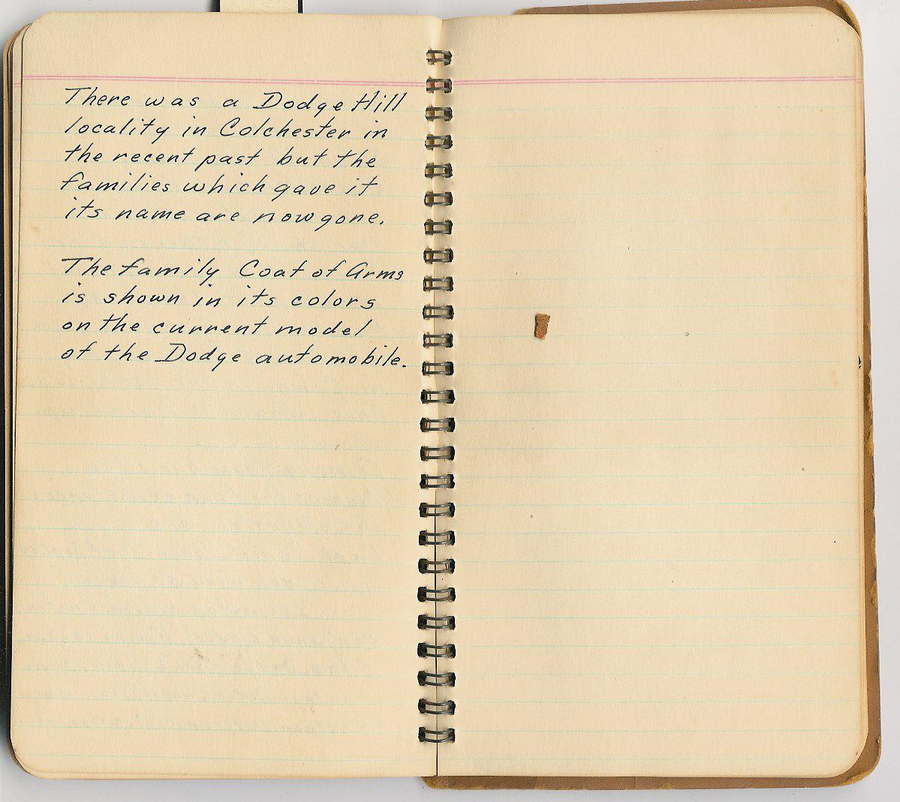 There was a Dodge Hill
locality in Colchester in
the recent past but the
families which gave it
its name are now gone.
The family Coat of Arms
is shown in its colors
on the current model
of the Dodge automobile.